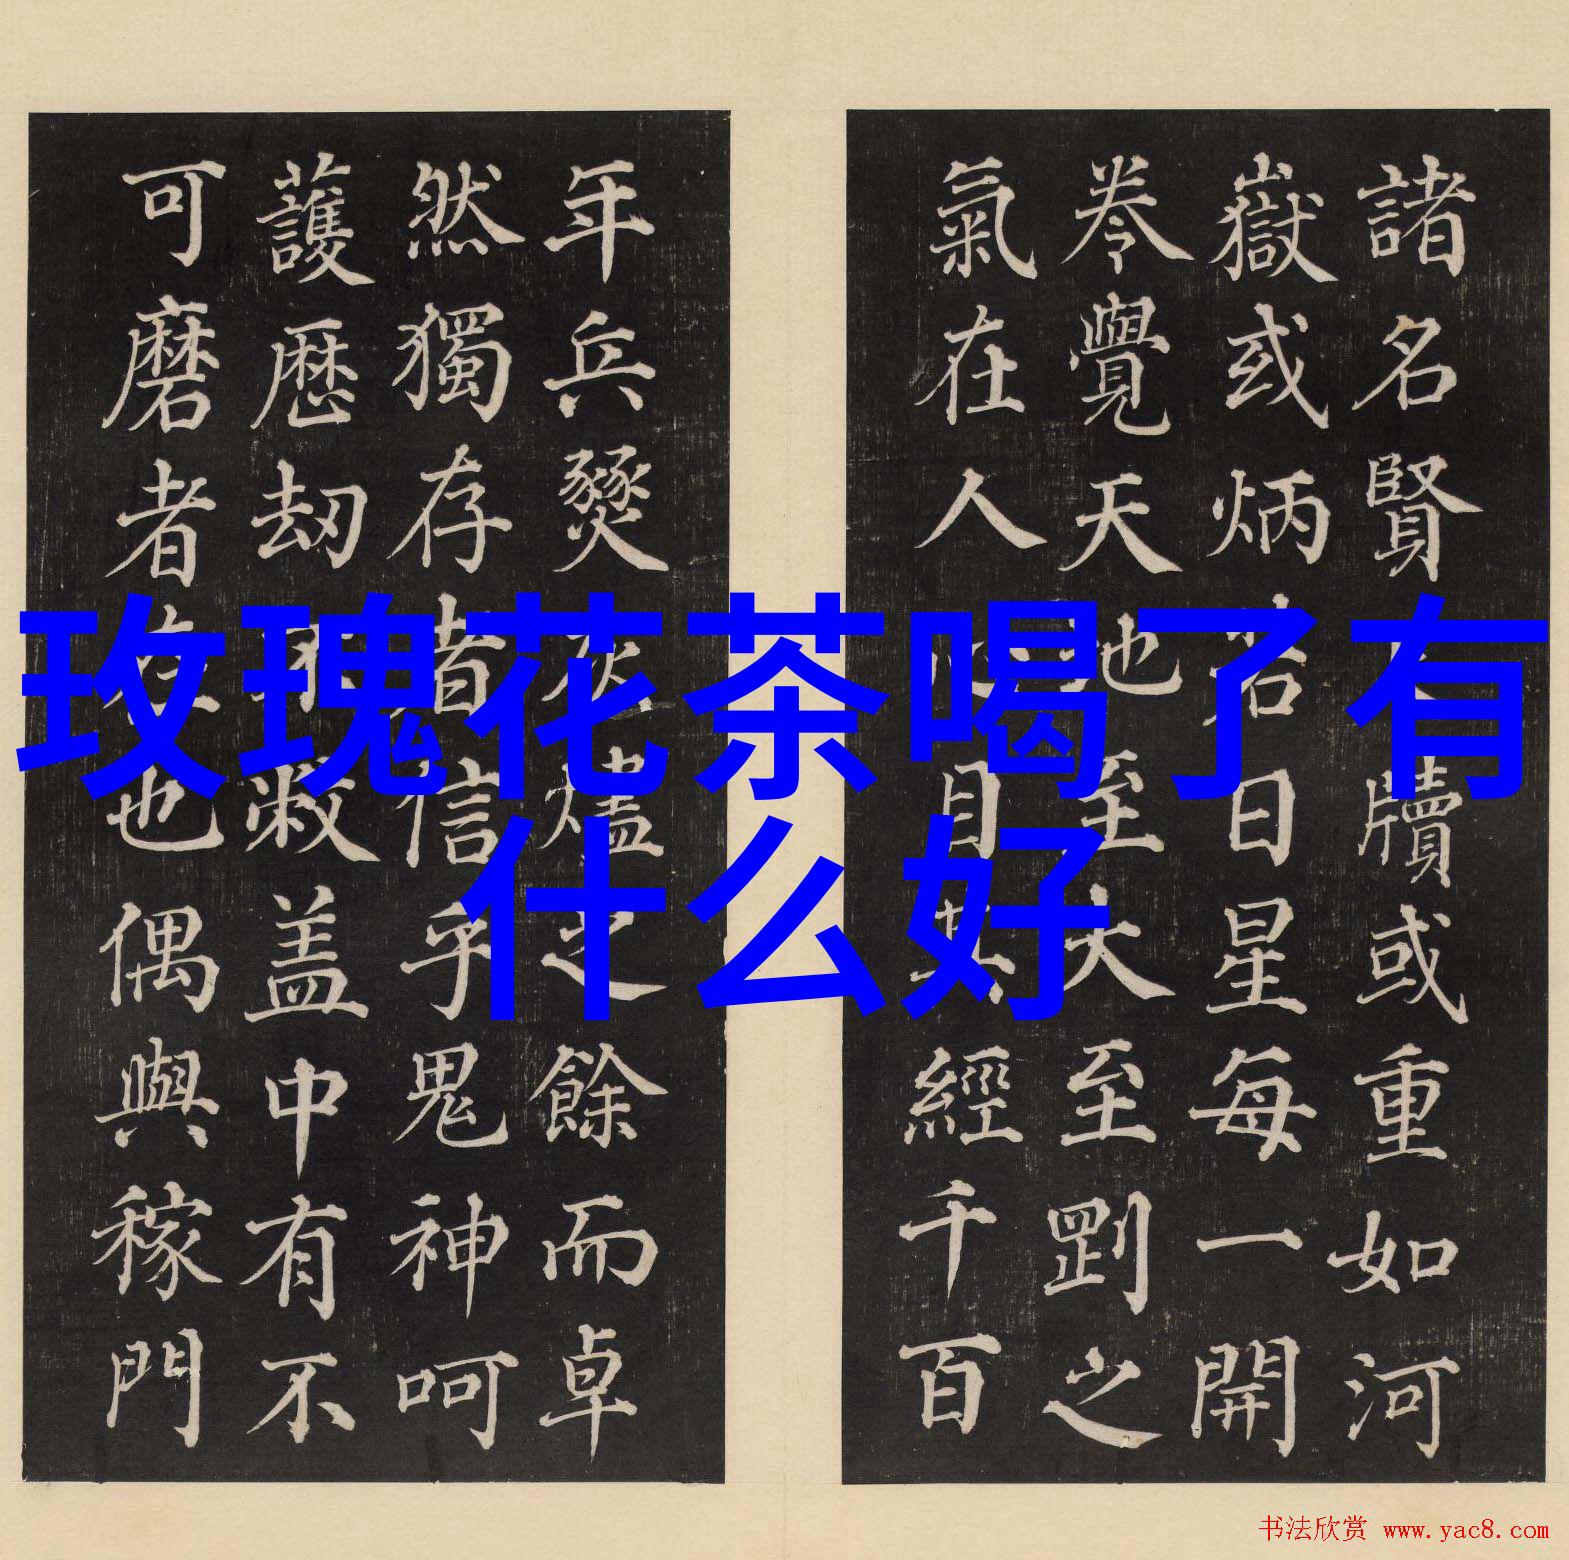 玫瑰花茶喝了有
什么好
諸名賢牘或重如河
嶽或炳若日星每一開
卷覺天地至大至剛之
氣在人目其經千百
年兵燹灰燼之餘而卓
然獨存者信乎鬼神呵
護歷劫盖中有不
可磨者在也偶與稼門
书法欣赏 www.yac8.com